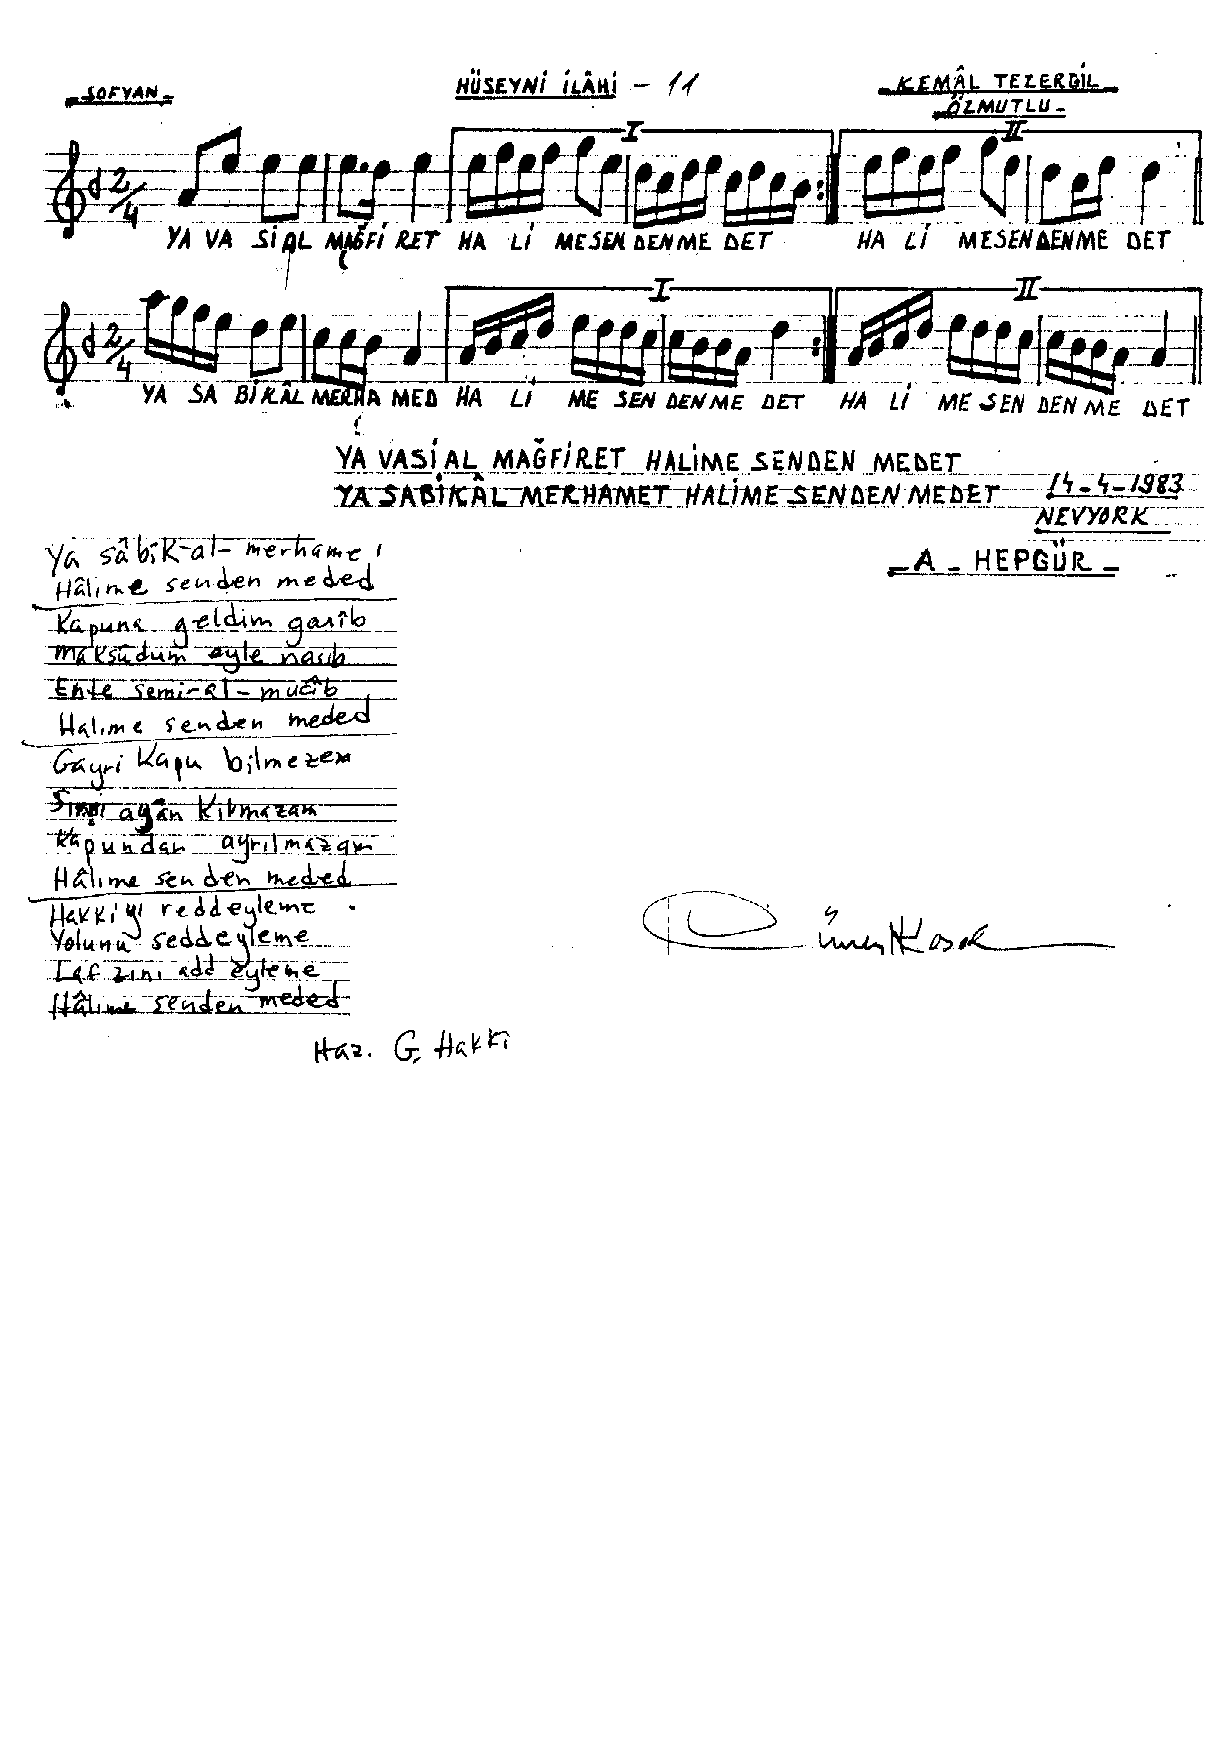 SOFYAN
HÜSEYNİ İLÂHİ - 11
KEMÂL TEZERGİL
ÖZMUTLU
I II
2/4
YA VA Sİ AL MAĞFİ RET HA Lİ MESEN DENME DET HA Lİ MESENDENME DET
I II
2/4
YA SA BİKÂL MERHA MED HA Lİ ME SEN DENME DET HA Lİ ME SEN DEN ME DET
YA VASİ AL MAĞFİRET HALİME SENDEN MEDET
YA SABİKÂL MERHAMET HALİME SENDEN MEDET
14-4-1983
NEVYORK
A - HEPGÜR
Ya sâbik-al-merhame
Hâlime senden meded
Kapuna geldim garîb
Maksûdum eyle nasib
Ente semi-al-mucîb
Halime senden meded
Gayri Kapu bilmezem
ayân Kılmazam
Kapundan ayrılmazam
Hâlime senden meded
Hakki'yi reddeyleme
Yolunu seddeyleme
Lafzını add eyleme
Hâlime senden meded
Haz. G. Hakki